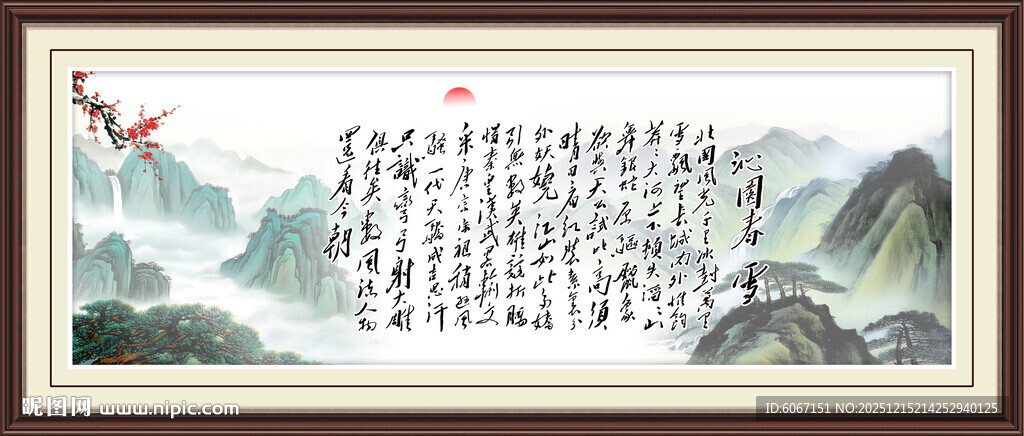 沁園春 雪
北國風光千里冰封萬里
雪飄望長城内外惟餘
莽々大河上下頓失滔々山
舞銀蛇原驅臘象
欲與天公試比高須
晴日看紅裝素裹分
外妖嬈 江山如此多嬌
引無數英雄競折腰
惜秦皇漢武略輸文
采唐宗宋祖稍遜風
騷一代天驕成吉思汗
只識彎弓射大雕
俱往矣數風流人物
還看今朝
昵图网 www.nipic.com
ID:6067151 NO:20251215214252940125